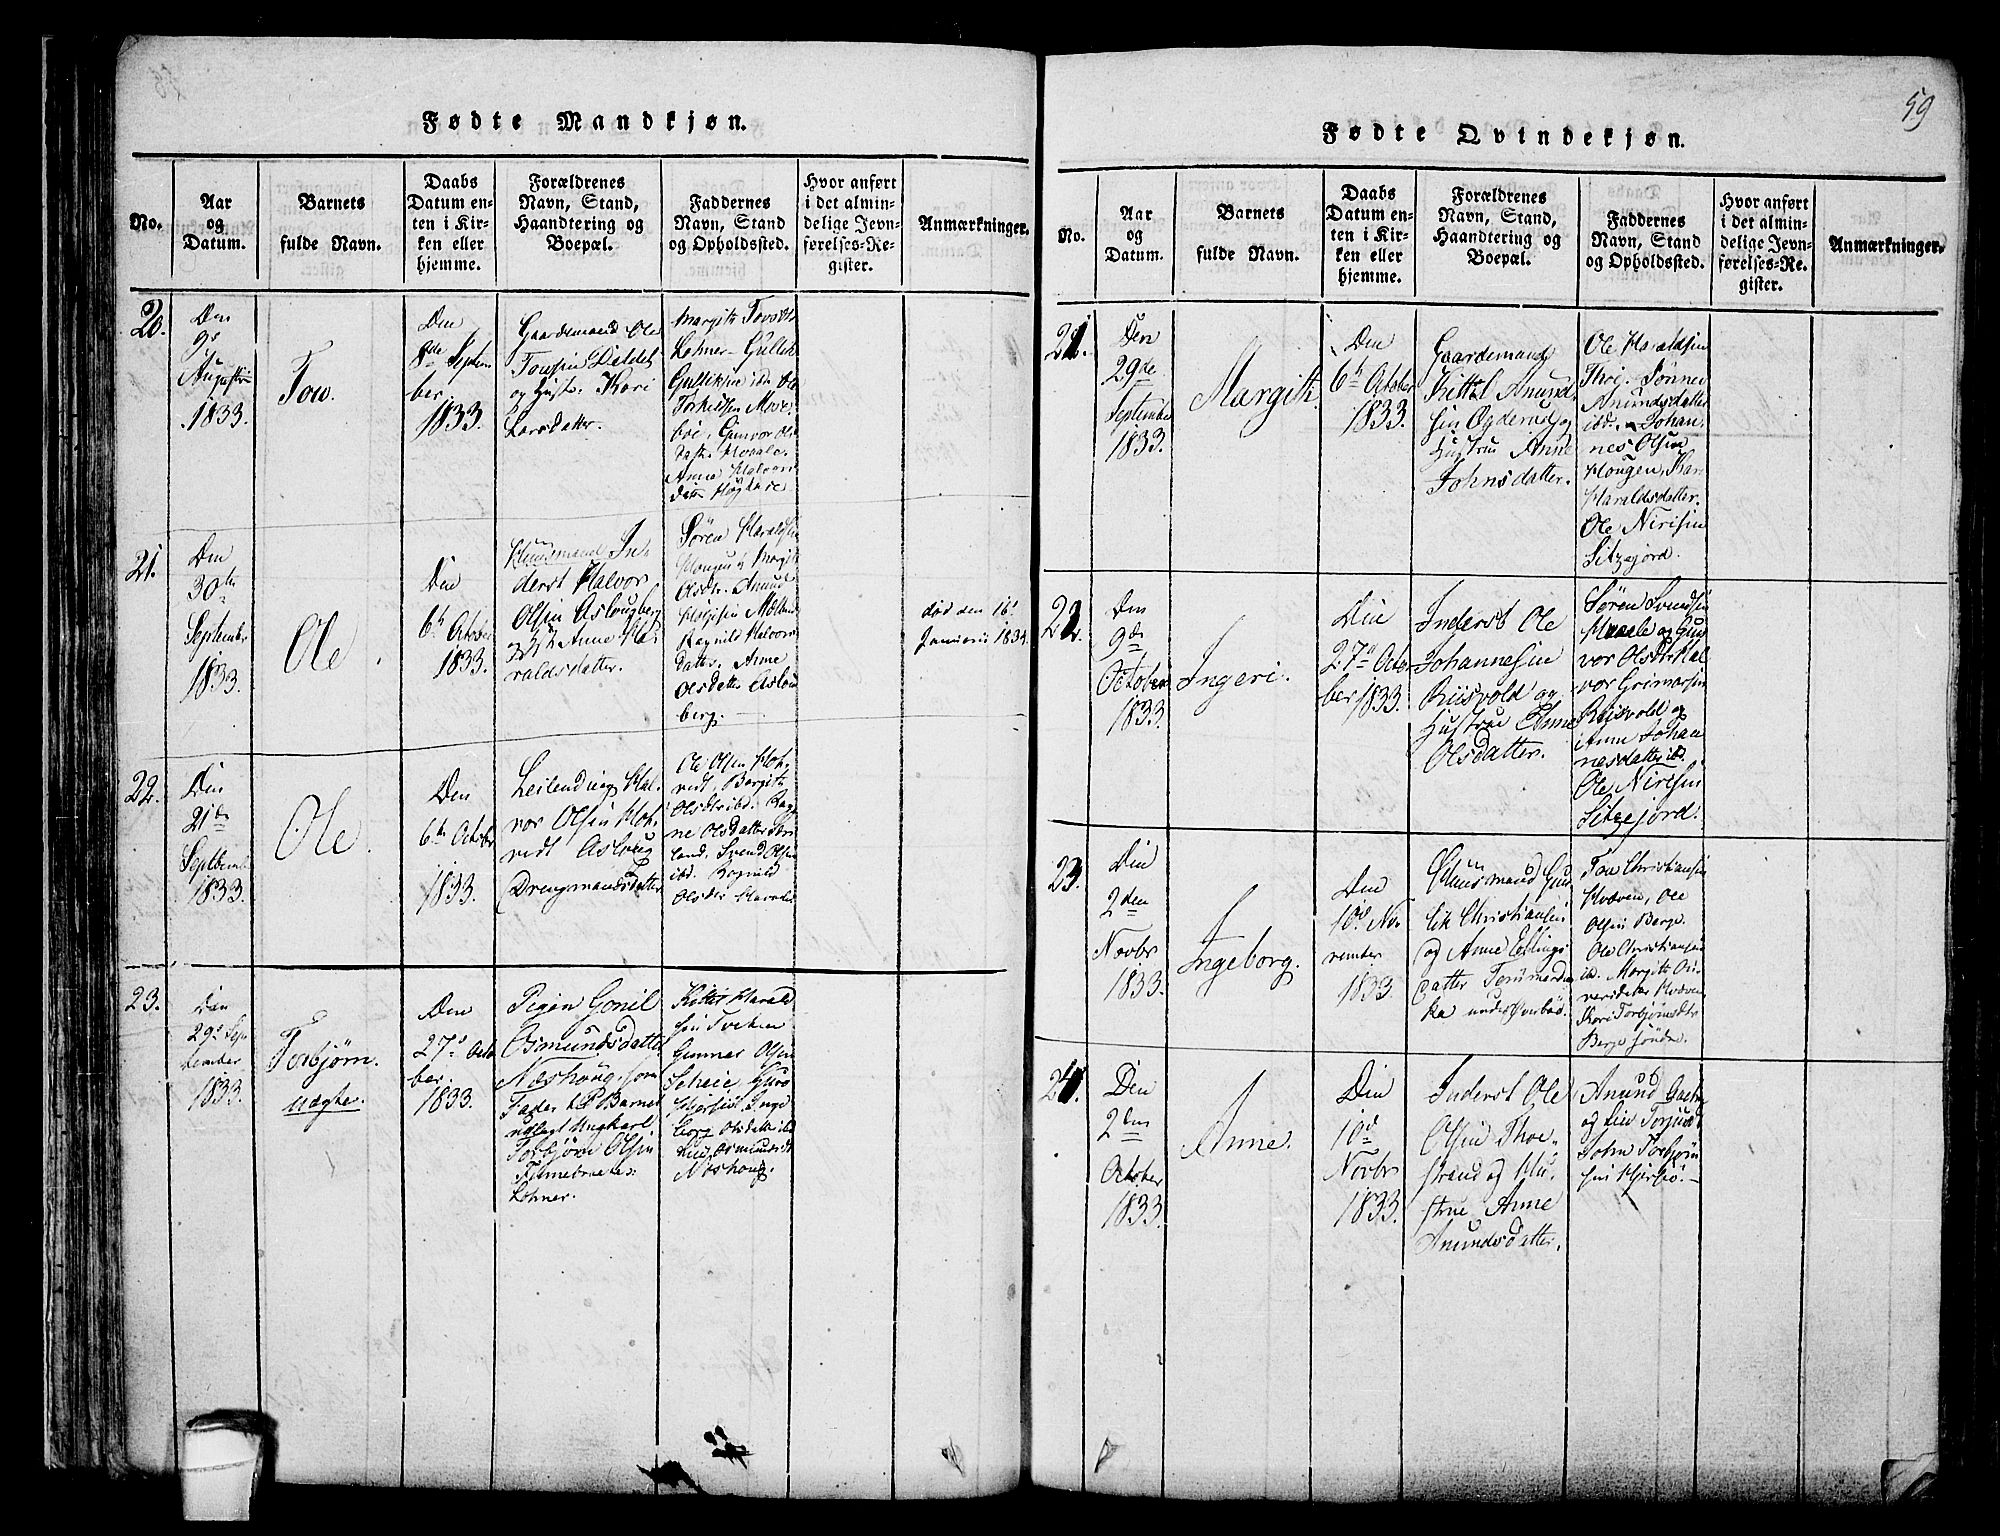 59
Fødte Mandkjøn.
No.
Aar
og
Datum.
Barnets
fulde Navn.
Daabs
Datum en-
ten i Kir-
ken eller
hjemme.
Forældrenes
Navn, Stand,
Haandtering og
Boepæl.
Faddernes
Navn, Stand
og Opholdssted.
Hvor anført
i det almin-
delige Jevn-
førelses-Re-
gister.
Anmærkninger.
20.
Den
9de
Augusti
1833.
Tov.
Den
8de Septem
ber
1833.
Gaardemand Ole
Tovsen Daldet
og Hustr. Kari
Larsdatter.
Margith Tovsdtr
Lohner. Gullek
Gulliksen ibd. Ole
Torkildsen Moere
boe. Gunvor Ols
datt. Moaale.
Anne Halvors
datt.
21.
Den
30te
September
1833.
Ole.
Den
6te October
1833.
Huusmand In-
derst Halvor
Olsen Aslougberg
og H. Anne Ha-
raldsdatter.
Søren Haraldsen
Hougen, Margit
Olsdtr. Anund
Ragnild Halvors
datter. Anne
Olsdatter Aslou
berg.
død den 16de
Januarii 1834.
22.
Den
21de
Septemb.
1833.
Ole.
Den
6te October
1833.
Leilending Hal-
vor Olsen Hot-
vedt Asloug
Drengmandsdatter
Ole Olsen Hot-
vedt, Bergith
Olsdtr ibd. Rag
ne Olsdatter
land. Svend Olsen
ibd. Ragnild
Olsdtr
23.
Den
29de Sep
tember
1833.
Torbjørn.
uægte.
Den
27de Octo
ber.
1833.
Pigen Gonil
Osmundsdatter
Næshoug, som
Fader t. Barnet
udlagt Ungkarl
Torbjørn Olsen
Lohner.
Kittel Harald
sen Tveten
Gunner Olsen
Scheie Guro
Inge
borg Olsdatter ibd
Osmundsdt
Næshoug
Fødte Qvindekjøn.
No.
Aar
og
Datum.
Barnets
fulde Navn.
Daabs
Datum en-
ten i Kir-
ken eller
hjemme.
Forældrenes
Navn, Stand,
Haandtering og
Boepæl.
Faddernes
Navn, Stand
og Opholdssted.
Hvor anført
i det almin-
delige Jevn-
førelses-Re-
gister.
Anmærkninger.
21.
Den
29de
September
1833.
Margith.
Den
6te October
1833.
Gaardemand
Kittel Anund
sen Ogderud og
Hustrue Anne
Johnsdatter.
Ole Haraldsen
Thrij. Sønnev
Anundsdatter
ibd. Johan
nes Olsen
Hougen, Kari
Haraldsdatter.
Ole Nirisen
Sitzejord.
22.
Den
9de
October
1833.
Ingeri.
Den
27de Octo
ber 1833.
Inderst Ole
Johannesen
Riisvold og
Hustrue Anne
Olsdatter.
Søren Svendsen
Moaale og Gun
vor Olsdtr Hal
vor Grimarsen
Riisvold og
Anne Johan
nesdatter ibd.
Ole Nirisen
Sitzejord.
23.
Den
2den
Novbr
1833.
Ingeborg.
Den
10de No-
vember
1833.
Huusmand Gul
lik Christiansen
og Anne Ellings
datter Tømmeraas
ka under Øverbøe.
Tov Christiansen
Kvæven, Ole
Olsen Berge.
Ole Christiansen
ib. Margith Oli
versdatter Kvæven
Kari Torbjørnsdtr
Berge søndre.
24.
Den
2den
October
1833.
Anne.
Den
10de
Novbr
1833.
Inderst Ole
Olsen Thoe-
strand og Hu-
strue Anne
Anundsdatter.
Anund
og Liv Torjusdt
John Torbjørn
sen